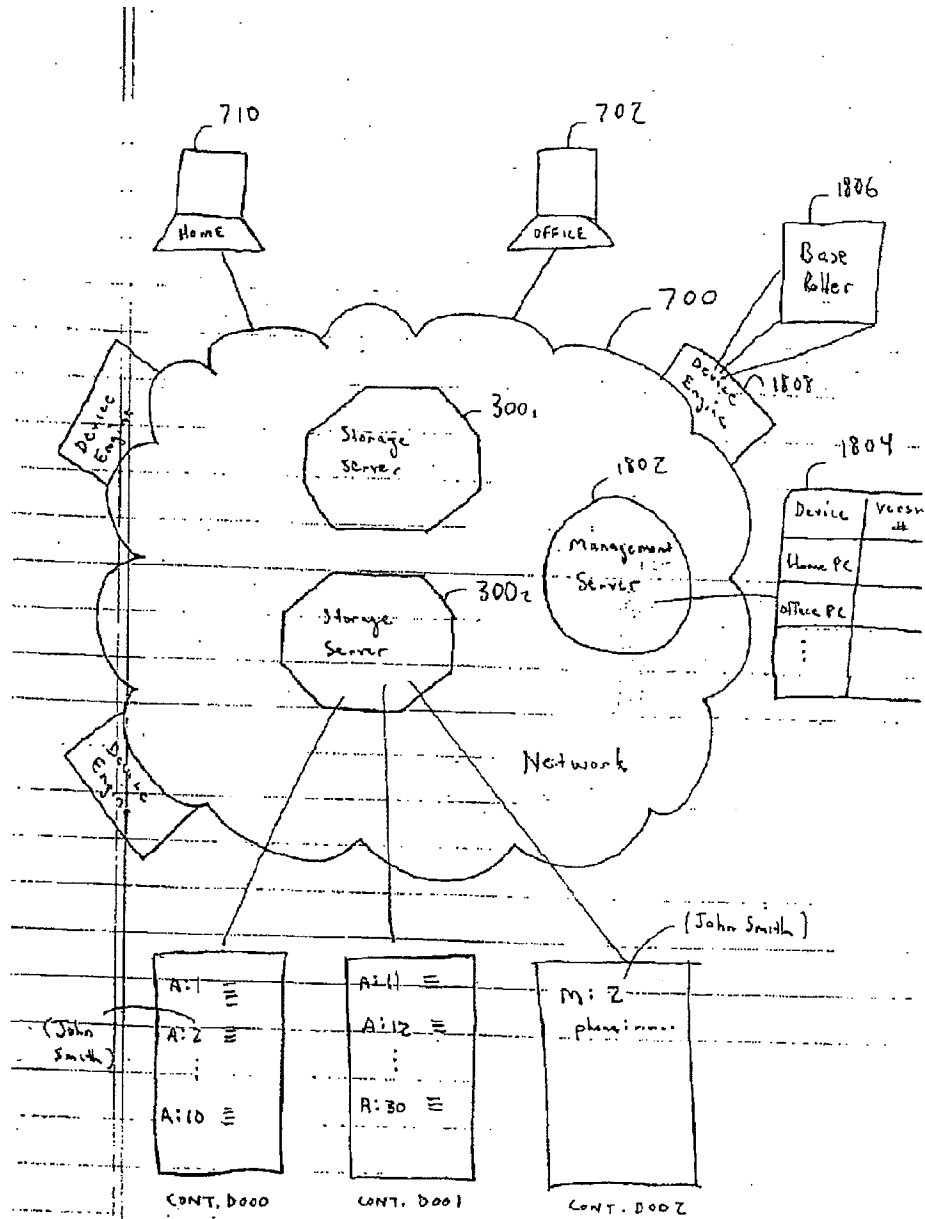 710
702
HOME
OFFICE
1806
Base
Roller
700
Device
Engine
1808
Device
Engine
300₁
Storage
Server
1802
Management
Server
1804
Device
Home PC
Office PC
300₂
Storage
Server
Network
Device
Engine
(John Smith)
A:1
A:2
⋮
A:10
(John
Smith)
A:11
A:12
⋮
A:30
M: 2
phone:
CONT. D000
CONT. D001
CONT. D002